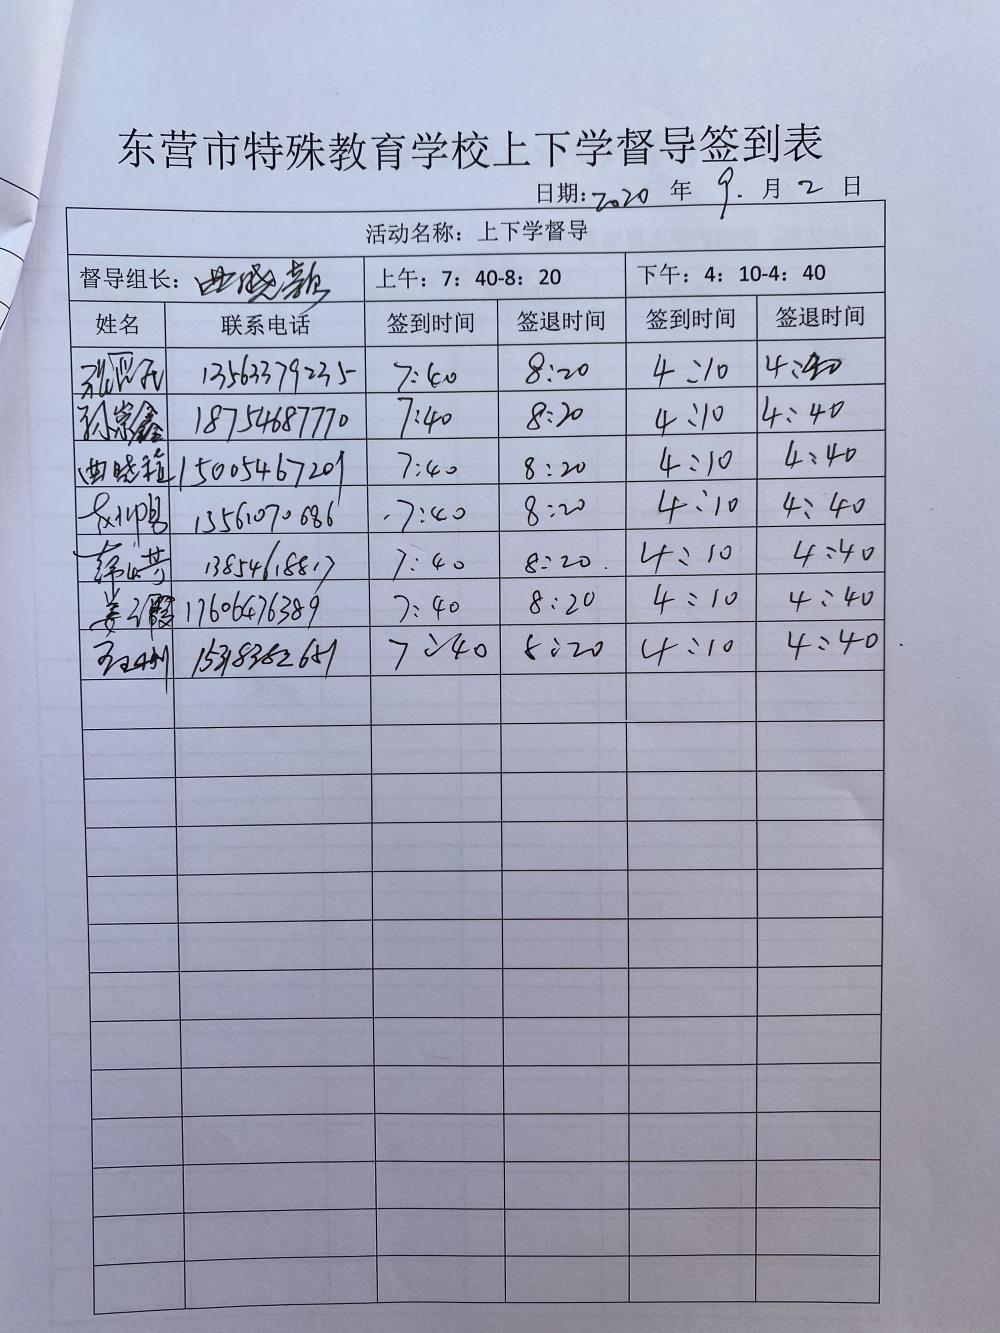 东营市特殊教育学校上下学督导签到表
日期:2020 年 9. 月 2 日
活动名称：上下学督导
督导组长：曲晓颖 上午：7：40-8：20 下午：4：10-4：40
姓名 联系电话 签到时间 签退时间 签到时间 签退时间
13563379235 7:40 8:20 4:10 4:40
孙崇鑫 18754687770 7:40 8:20 4:10 4:40
曲晓颖 15005467201 7:40 8:20 4:10 4:40
13561070686 7:40 8:20 4:10 4:40
13854618817 7:40 8:20 4:10 4:40
姜 17606476389 7:40 8:20 4:10 4:40
7:40 8:20 4:10 4:40